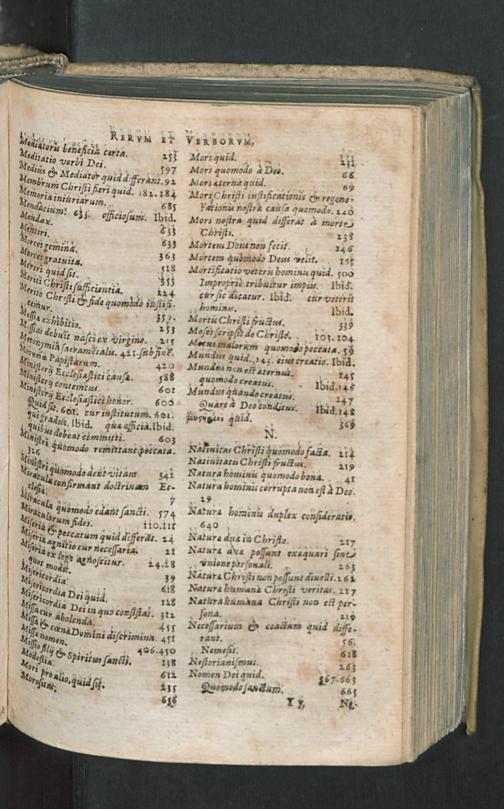 RERVM ET VERBORVM,
Mediatoris beneficia certa. 253
Meditatio verbi Dei. 597
Medius & Mediator quid differant. 92
Membrum Christi fieri quid. 182.184
Memoria iniuriarum. 685
Mendacium. 633. officiosum. Ibid.
Mendax. 633
Mentiri. 633
Merces gemina. 363
Merces gratuita. 518
Mereri quid sit. 353
Meriti Christi sufficientia. 224
Merito Christi & fide quomodo iustifi-
cemur. 352.
Messiæ exhibitio. 253
Messias debuit nasci ex virgine. 215
Metonymia sacramētalis. 421. sub fine.
Papistarum. 420
Ministerij Ecclesiastici causa. 588
Ministerij contemtus. 601
Ministerij Ecclesiastici honor. 600
Quid sit. 601. cur institutum. 601.
qui gradus. Ibid. quæ officia. Ibid.
quibus debeat committi. 603
Ministri quomodo remittant peccata.
326
Ministri quomodo dent vitam. 342
Miracula confirmant doctrinam Ec-
clesiæ. 7
Miracula quomodo edant sancti. 574
Miraculorum fides. 110.111
Miseria & peccatum quid differāt. 24
Miseriæ agnitio cur necessaria. 21
Miseria ex lege agnoscitur. 24.28
quot modis. 39
Misericordia. 618
Misericordia Dei quid. 128
Misericordia Dei in quo consistat. 312
Missa cur abolenda. 455
Missæ & cœnæ Domini discrimina. 451
Missæ nomen. 406.450
Missio filij & Spiritus sancti. 138
Modestia. 612
Mori pro alio, quid sit. 235
Morositas. 636
Mors quid. 231
Mors quomodo à Deo. 66
Mors æterna quid. 69
Mors Christi iustificationis & regene-
rationis nostræ causa quomodo. 240
Mors nostra quid differat à morte
Christi. 238
Mortem Deus non fecit. 146
Mortem quomodo Deus velit. 155
Mortificatio veteris hominis quid. 500
Impropriè tribuitur impiis. Ibid.
cur sic dicatur. Ibid. cur veteris
hominis. Ibid.
Mortis Christi fructus. 339
Moses scripsit de Christo. 103.104
Motus malorum quomodo peccata. 59
Mundus quid. 143. eius creatio. Ibid.
Mundus non est æternus. 145
quomodo creatus. Ibid. 146
Mundus quando creatus. 147
Quare à Deo conditur. Ibid. 148
quid. 369
N.
Natiuitas Christi quomodo facta. 214
Natiuitatis Christi fructus. 219
Natura hominis quomodo bona. 41
Natura hominis corrupta non est à Deo.
29
Naturæ hominis duplex consideratio.
640
Naturæ duæ in Christo. 217
Naturæ duæ possunt exæquari sine
vnione personali. 263
Naturæ Christi non possunt diuelli. 262
Naturæ humanæ Christi veritas. 217
Natura humana Christi non est per-
sona. 219
Necessarium & coactum quid diffe-
rant. 56.
Nemesis. 618
Nestorianismus. 263
Nomen Dei quid. 567.663
Quomodo sanctum. 665
Yy No-